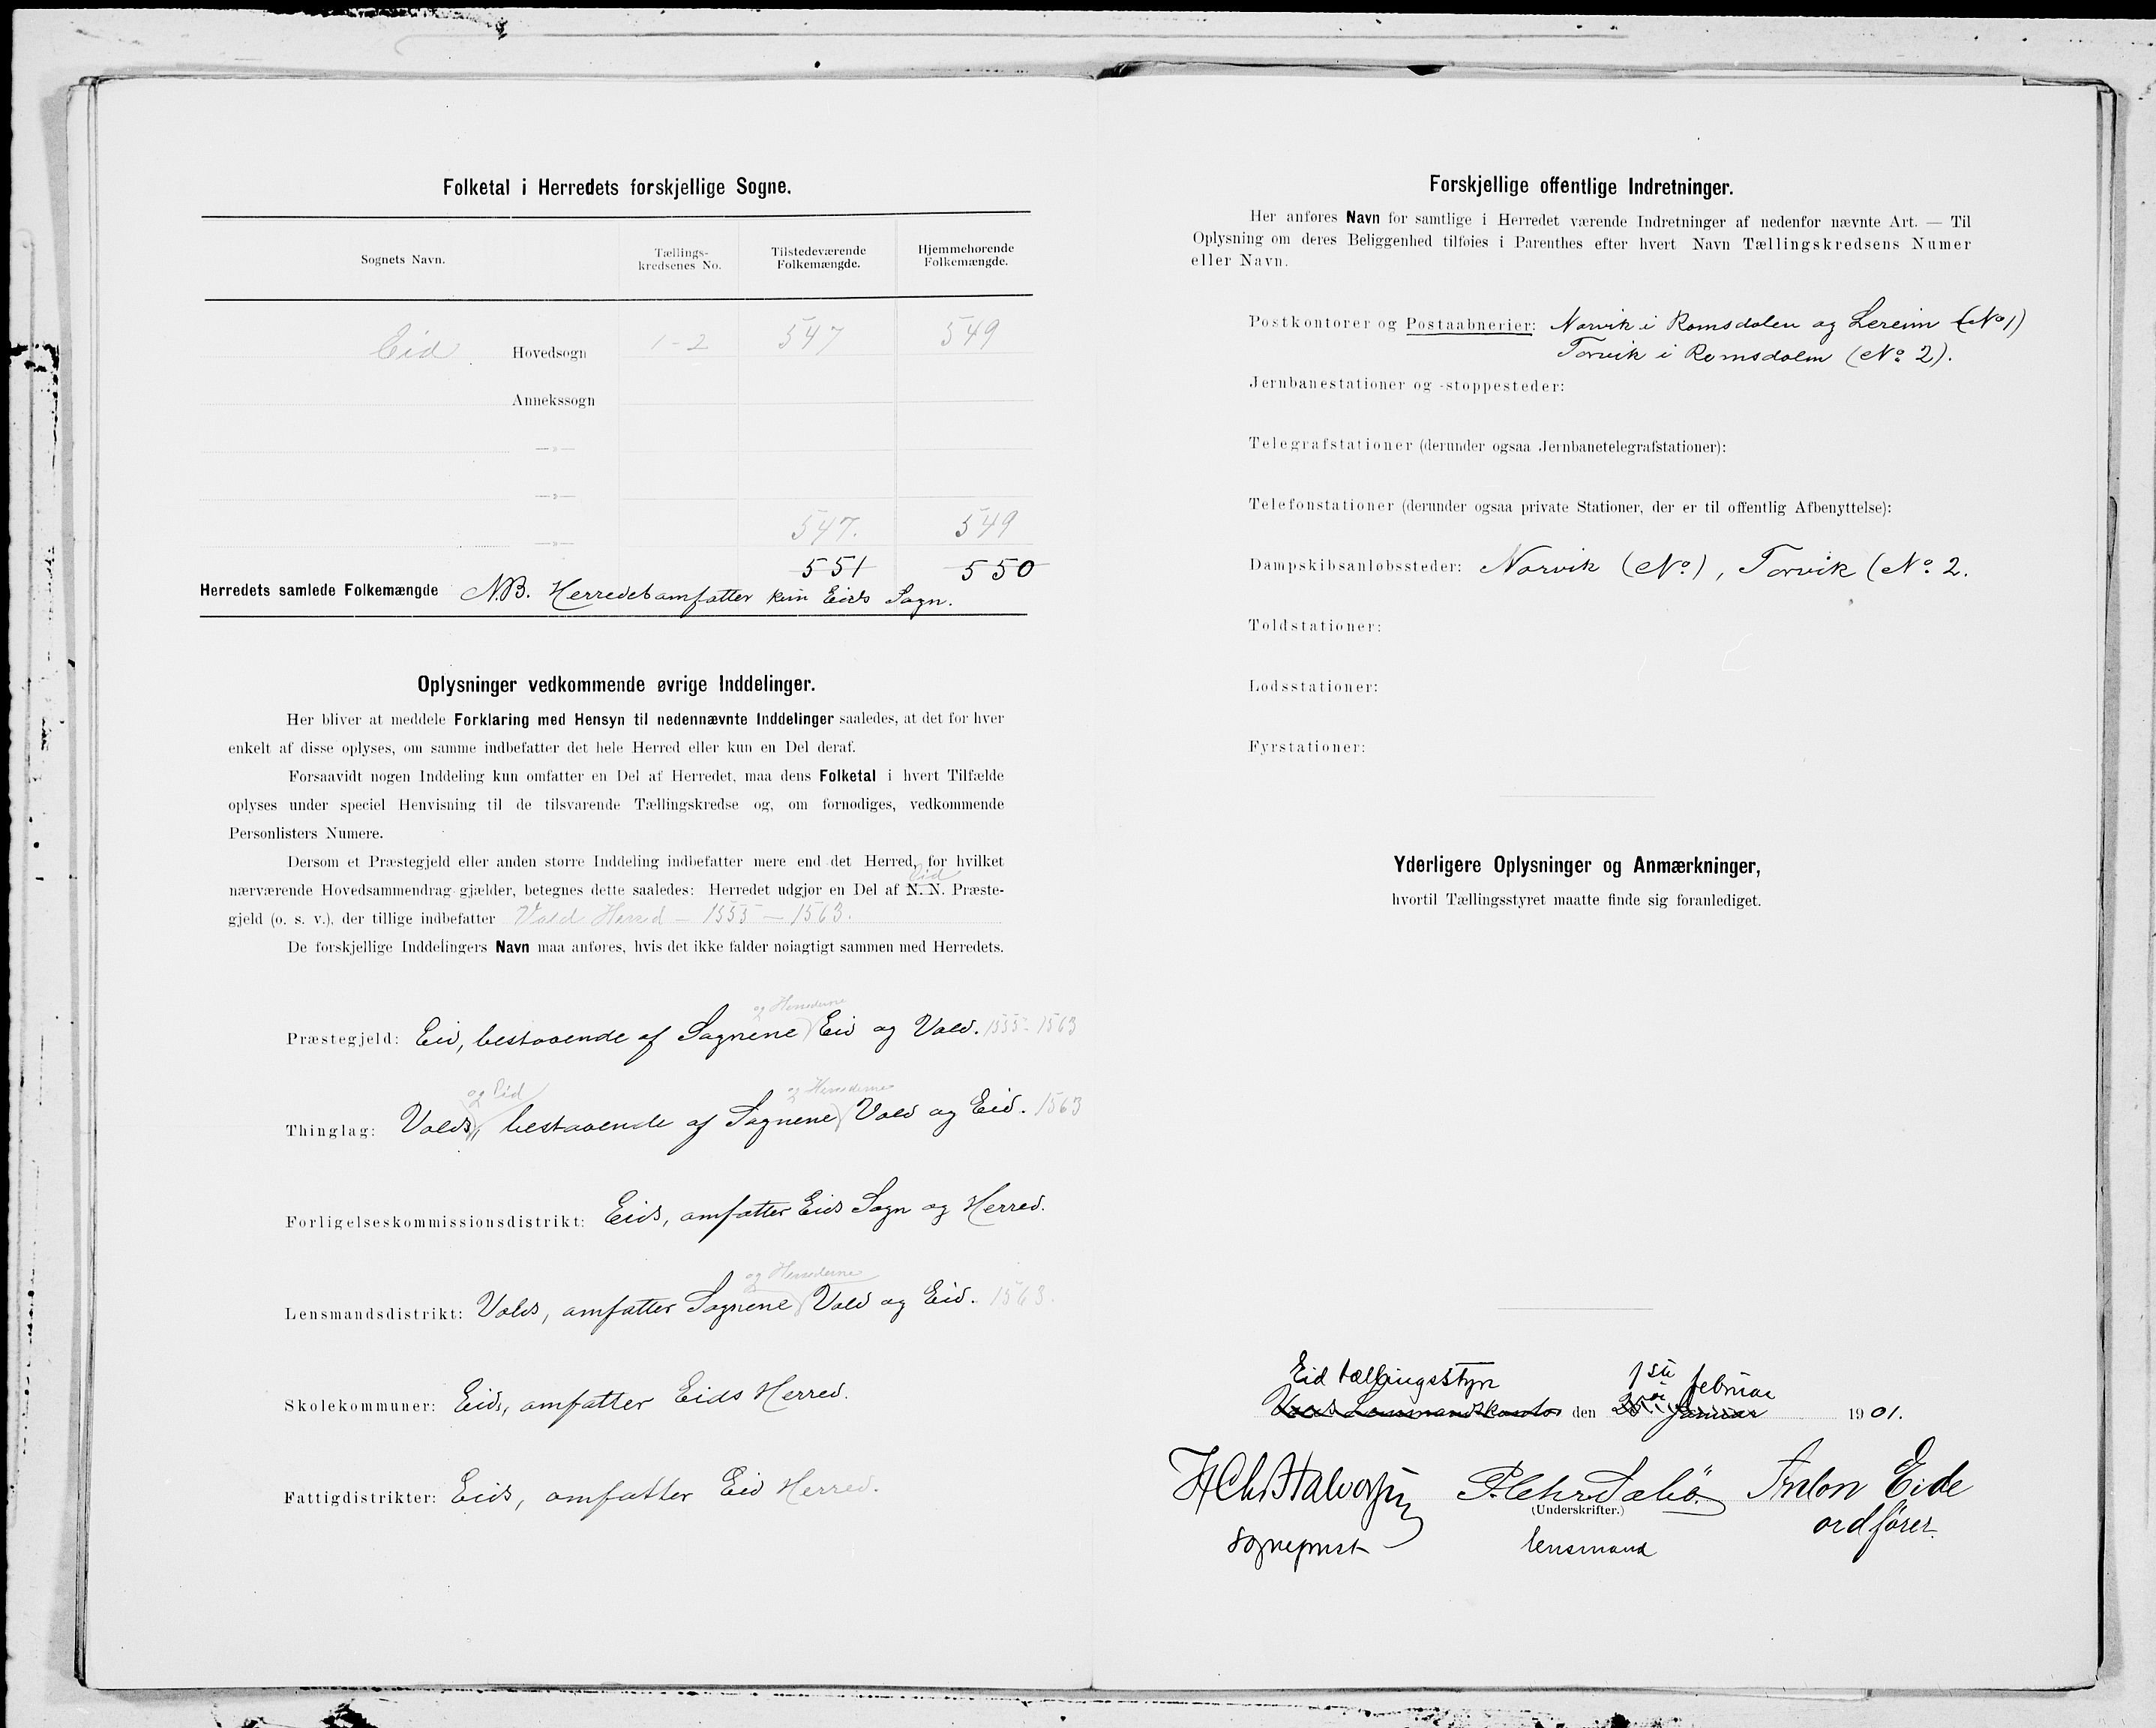 Folketal i Herredets forskjellige Sogne.
Sognets Navn.
Tællings-
kredsenes No.
Tilstedeværende
Folkemængde.
Hjemmehørende
Folkemængde.
Eid Hovedsogn 1-2 547 549
Annekssogn
—»—
—»—
—»— 547. 549
551 550
Herredets samlede Folkemængde N.B. Herredet omfatter kun Eids Sogn.
Oplysninger vedkommende øvrige Inddelinger.
Her bliver at meddele Forklaring med Hensyn til nedennævnte Inddelinger saaledes, at det for hver
enkelt af disse oplyses, om samme indbefatter det hele Herred eller kun en Del deraf.
Forsaavidt nogen Inddeling kun omfatter en Del af Herredet, maa dens Folketal i hvert Tilfælde
oplyses under speciel Henvisning til de tilsvarende Tællingskredse og, om fornødiges, vedkommende
Personlisters Numere.
Dersom et Præstegjeld eller anden større Inddeling indbefatter mere end det Herred, for hvilket
Eid
nærværende Hovedsammendrag gjælder, betegnes dette saaledes: Herredet udgjør en Del af N. N. Præste-
gjeld (o. s. v.), der tillige indbefatter Vold Herred – 1555 – 1563.
De forskjellige Inddelingers Navn maa anføres, hvis det ikke falder nøiagtigt sammen med Herredets.
og Herrederne
Præstegjeld: Eid, bestaaende af Sognene Eid og Vold. 1555-1563
og Eid og Herrederne
Thinglag: Volds, bestaaende af Sognene Vold og Eid. 1563
Forligelseskommissionsdistrikt: Eids, omfatter Eids Sogn og Herred.
og Herrederne
Lensmandsdistrikt: Volds, omfatter Sognene Vold og Eid. 1563.
Skolekommuner: Eids, omfatter Eids Herred.
Fattigdistrikter: Eids, omfatter Eid Herred.
Forskjellige offentlige Indretninger.
Her anføres Navn for samtlige i Herredet værende Indretninger af nedenfor nævnte Art. — Til
Oplysning om deres Beliggenhed tilføies i Parenthes efter hvert Navn Tællingskredsens Numer
eller Navn.
Postkontorer og Postaabnerier: Norvik i Romsdalen og Lereim (No 1)
Torvik i Romsdalen (No 2).
Jernbanestationer og -stoppesteder:
Telegrafstationer (derunder ogsaa Jernbanetelegrafstationer):
Telefonstationer (derunder ogsaa private Stationer, der er til offentlig Afbenyttelse):
Dampskibsanløbssteder: Norvik (No), Torvik (No 2.
Toldstationer:
Lodsstationer:
Fyrstationer:
Yderligere Oplysninger og Anmærkninger,
hvortil Tællingsstyret maatte finde sig foranlediget.
Eid tællingsstyre 1ste februar
Volds Lensmandskontor den Januar 1901.
H Chr Halvorsen P. Chr. Sæbø. Anton Eide
(Underskrifter.)
sogneprest lensmand ordfører.